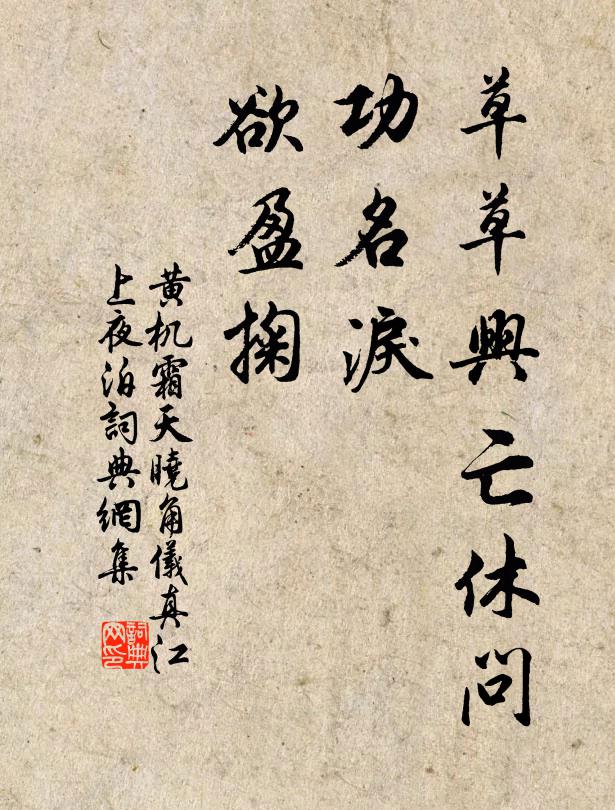 草草興亡休問
功名淚
欲盈掬
黄机霜天曉角儀真江
上夜泊詞典網集
詞典
网印